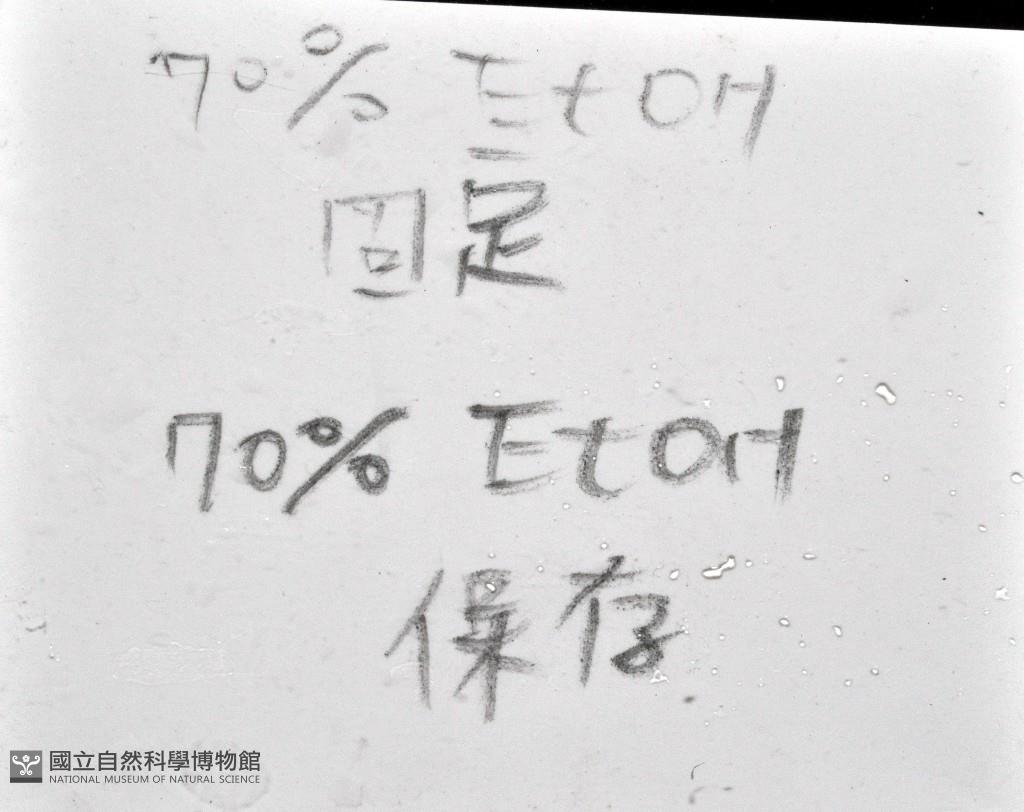 70% EtOH
固定
70% EtOH
保存
國立自然科學博物館
NATIONAL MUSEUM OF NATURAL SCIENCE